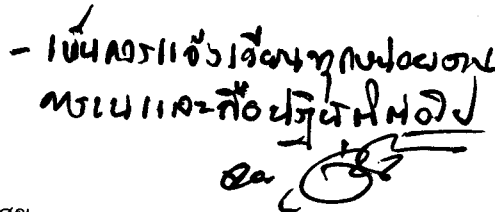 - เห็นควรแจ้งเวียนทุกหน่วยงาน
ทราบและถือปฏิบัติต่อไป